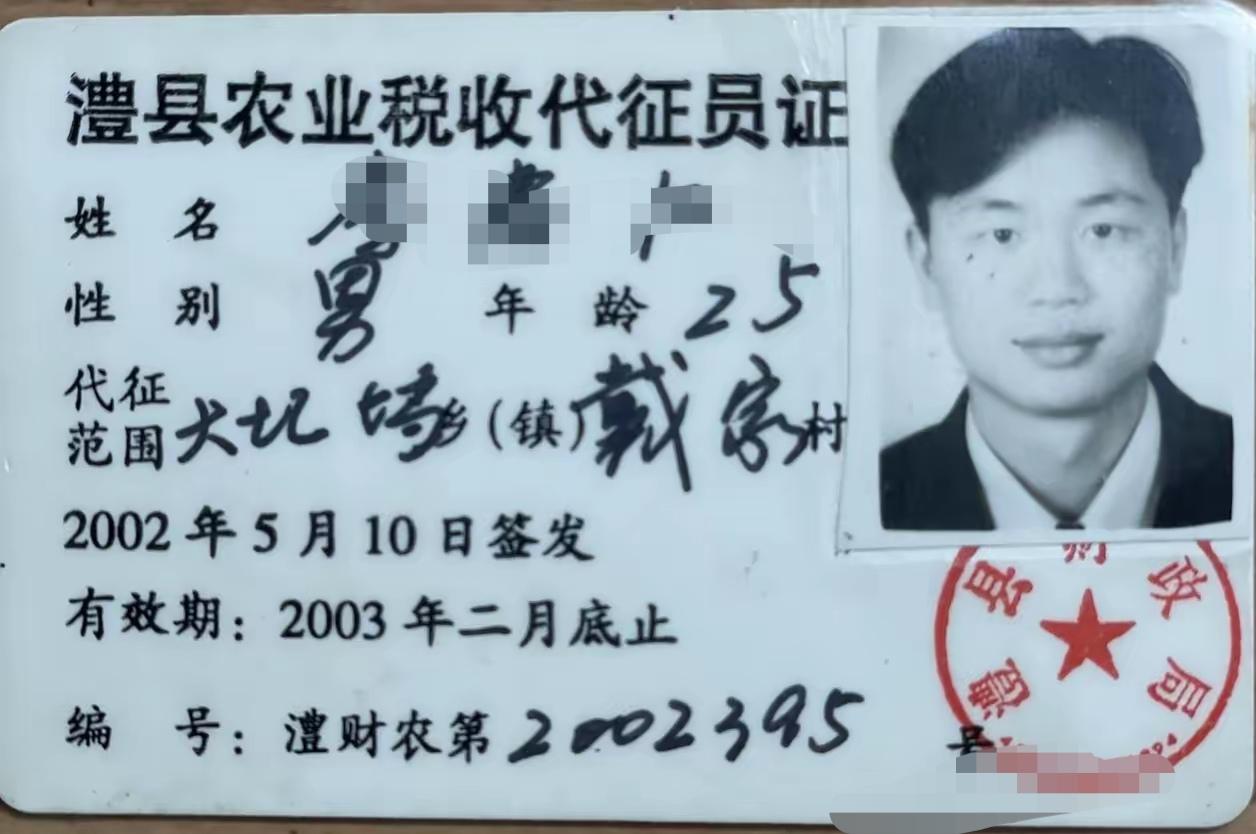 澧县农业税收代征员证
姓 名
性 别 男 年 龄 25
代征范围 大圮 乡（镇）戴家村
2002年5月10日签发
有效期：2003年二月底止
编 号：澧财农第2002395号
澧县财政局